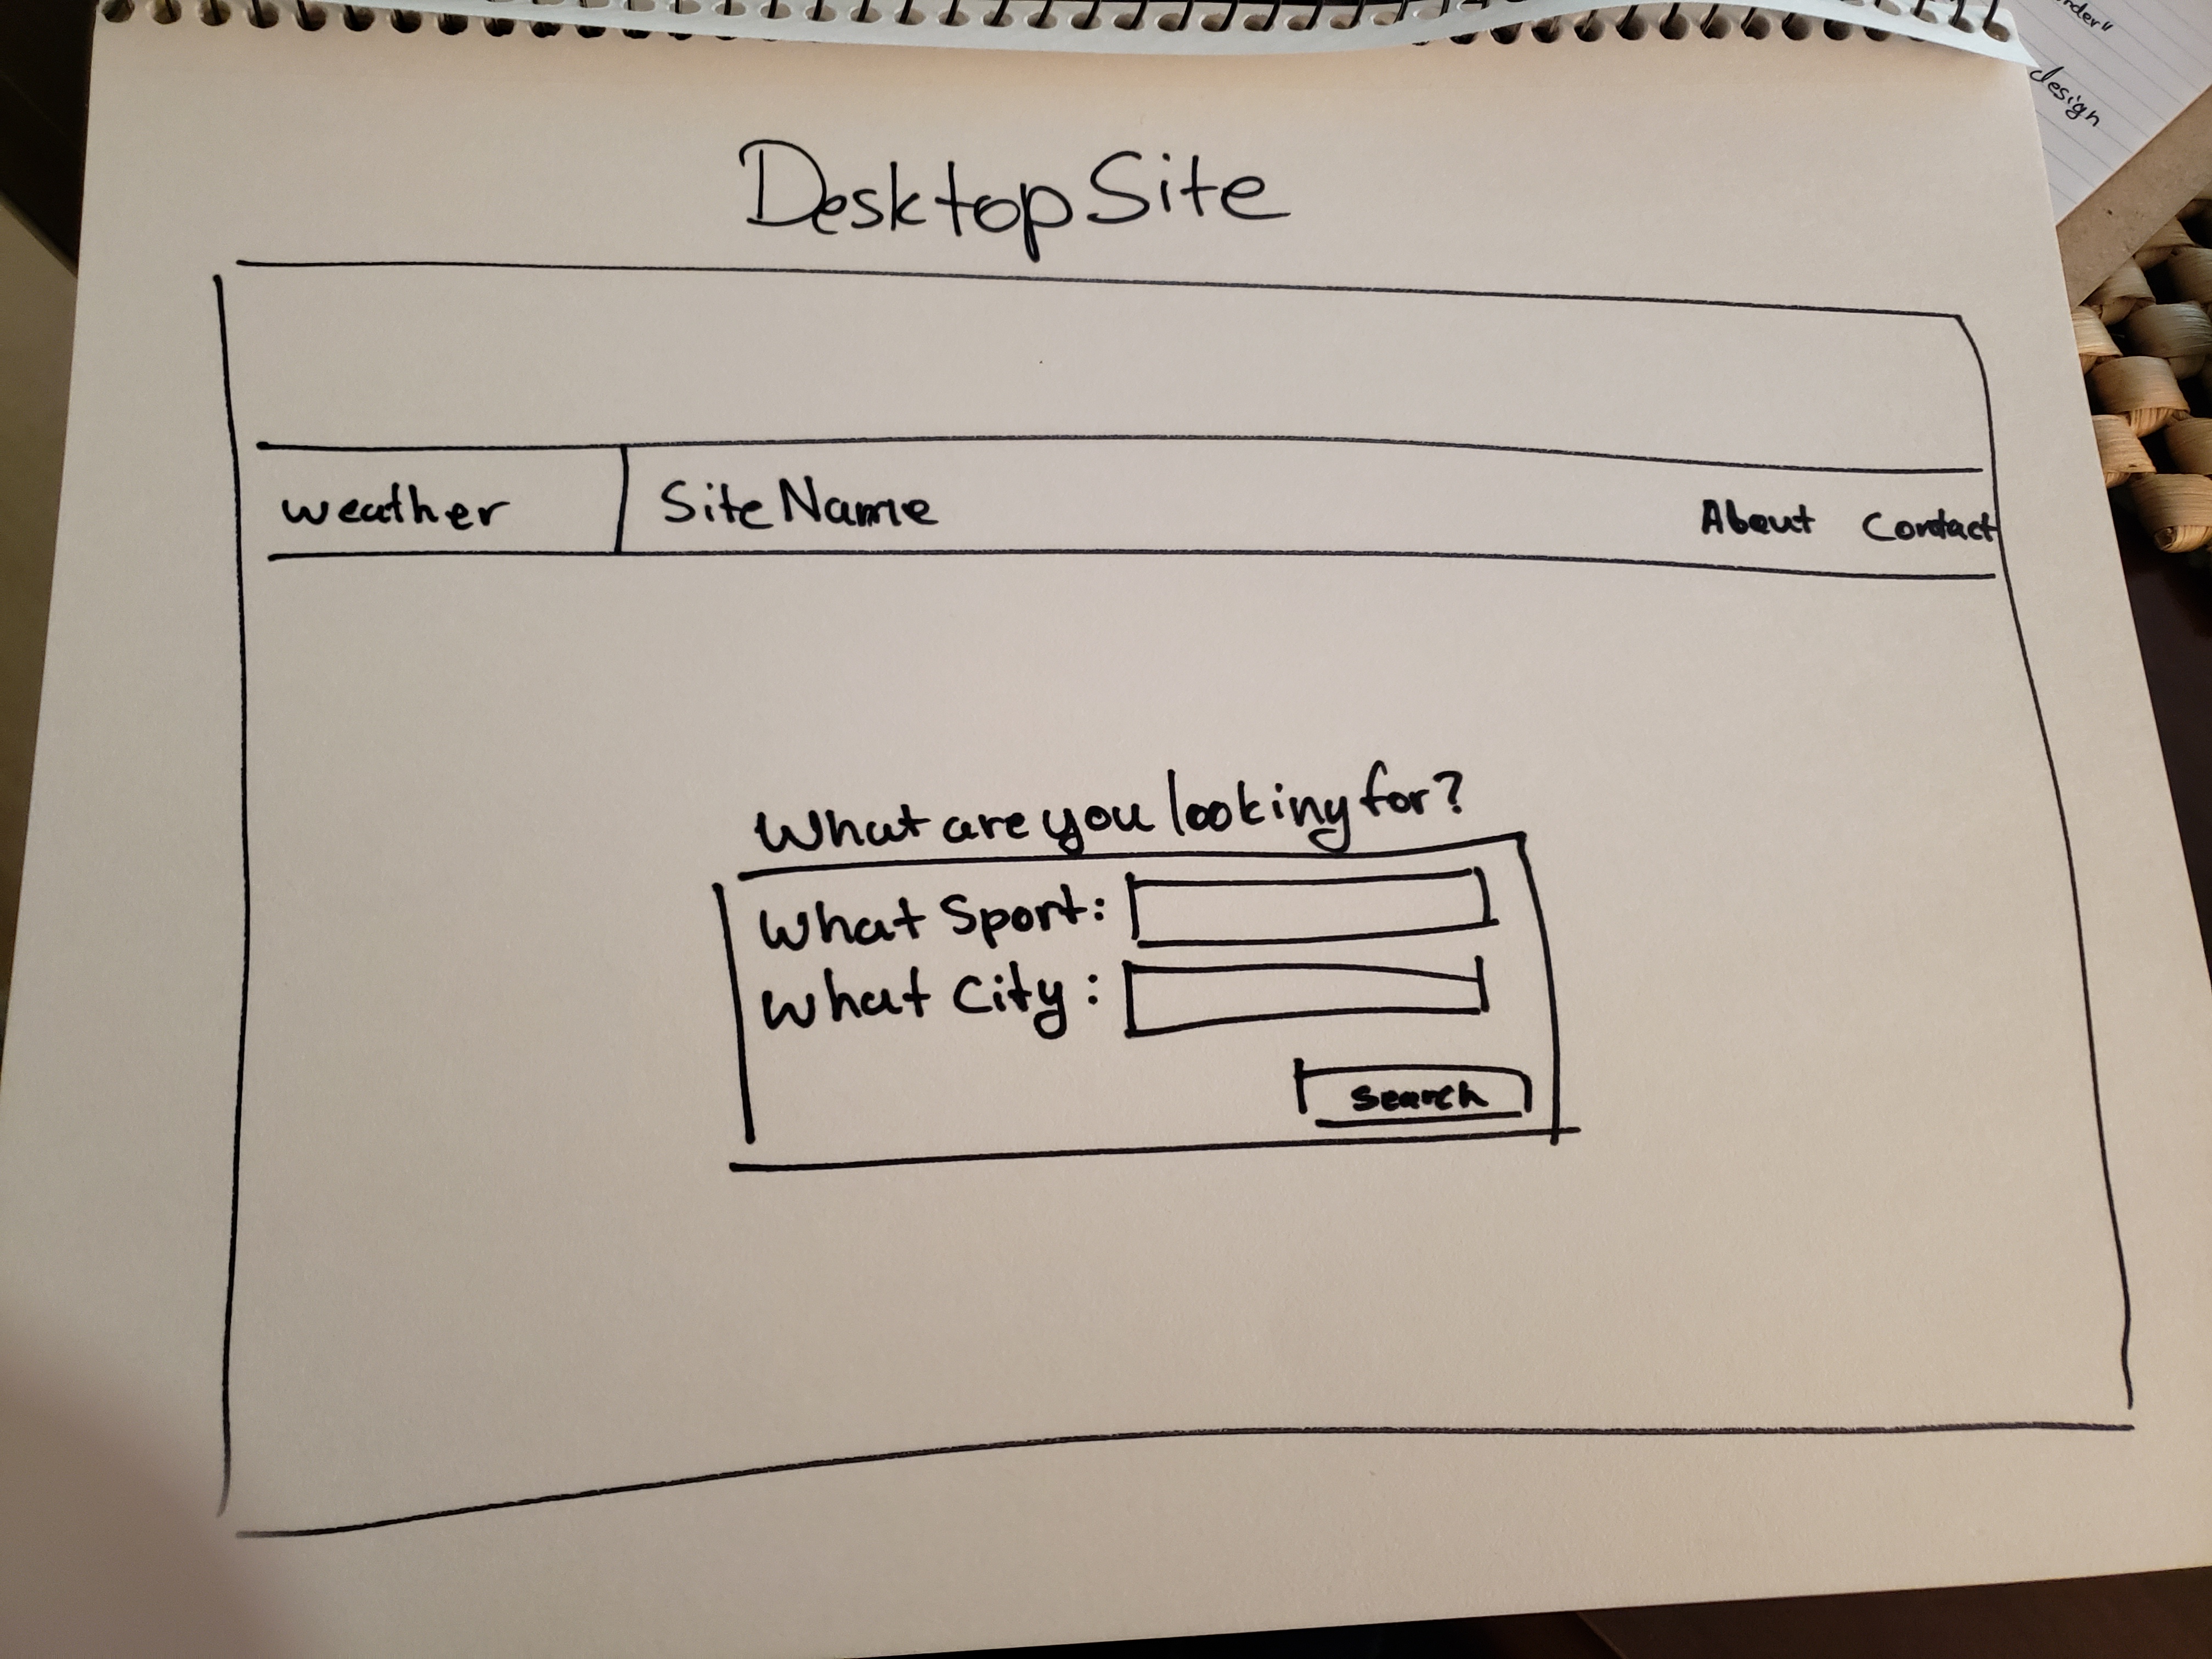 Desktop Site
weather SiteName About Contact
What are you looking for?
What Sport::
What City:
search
design